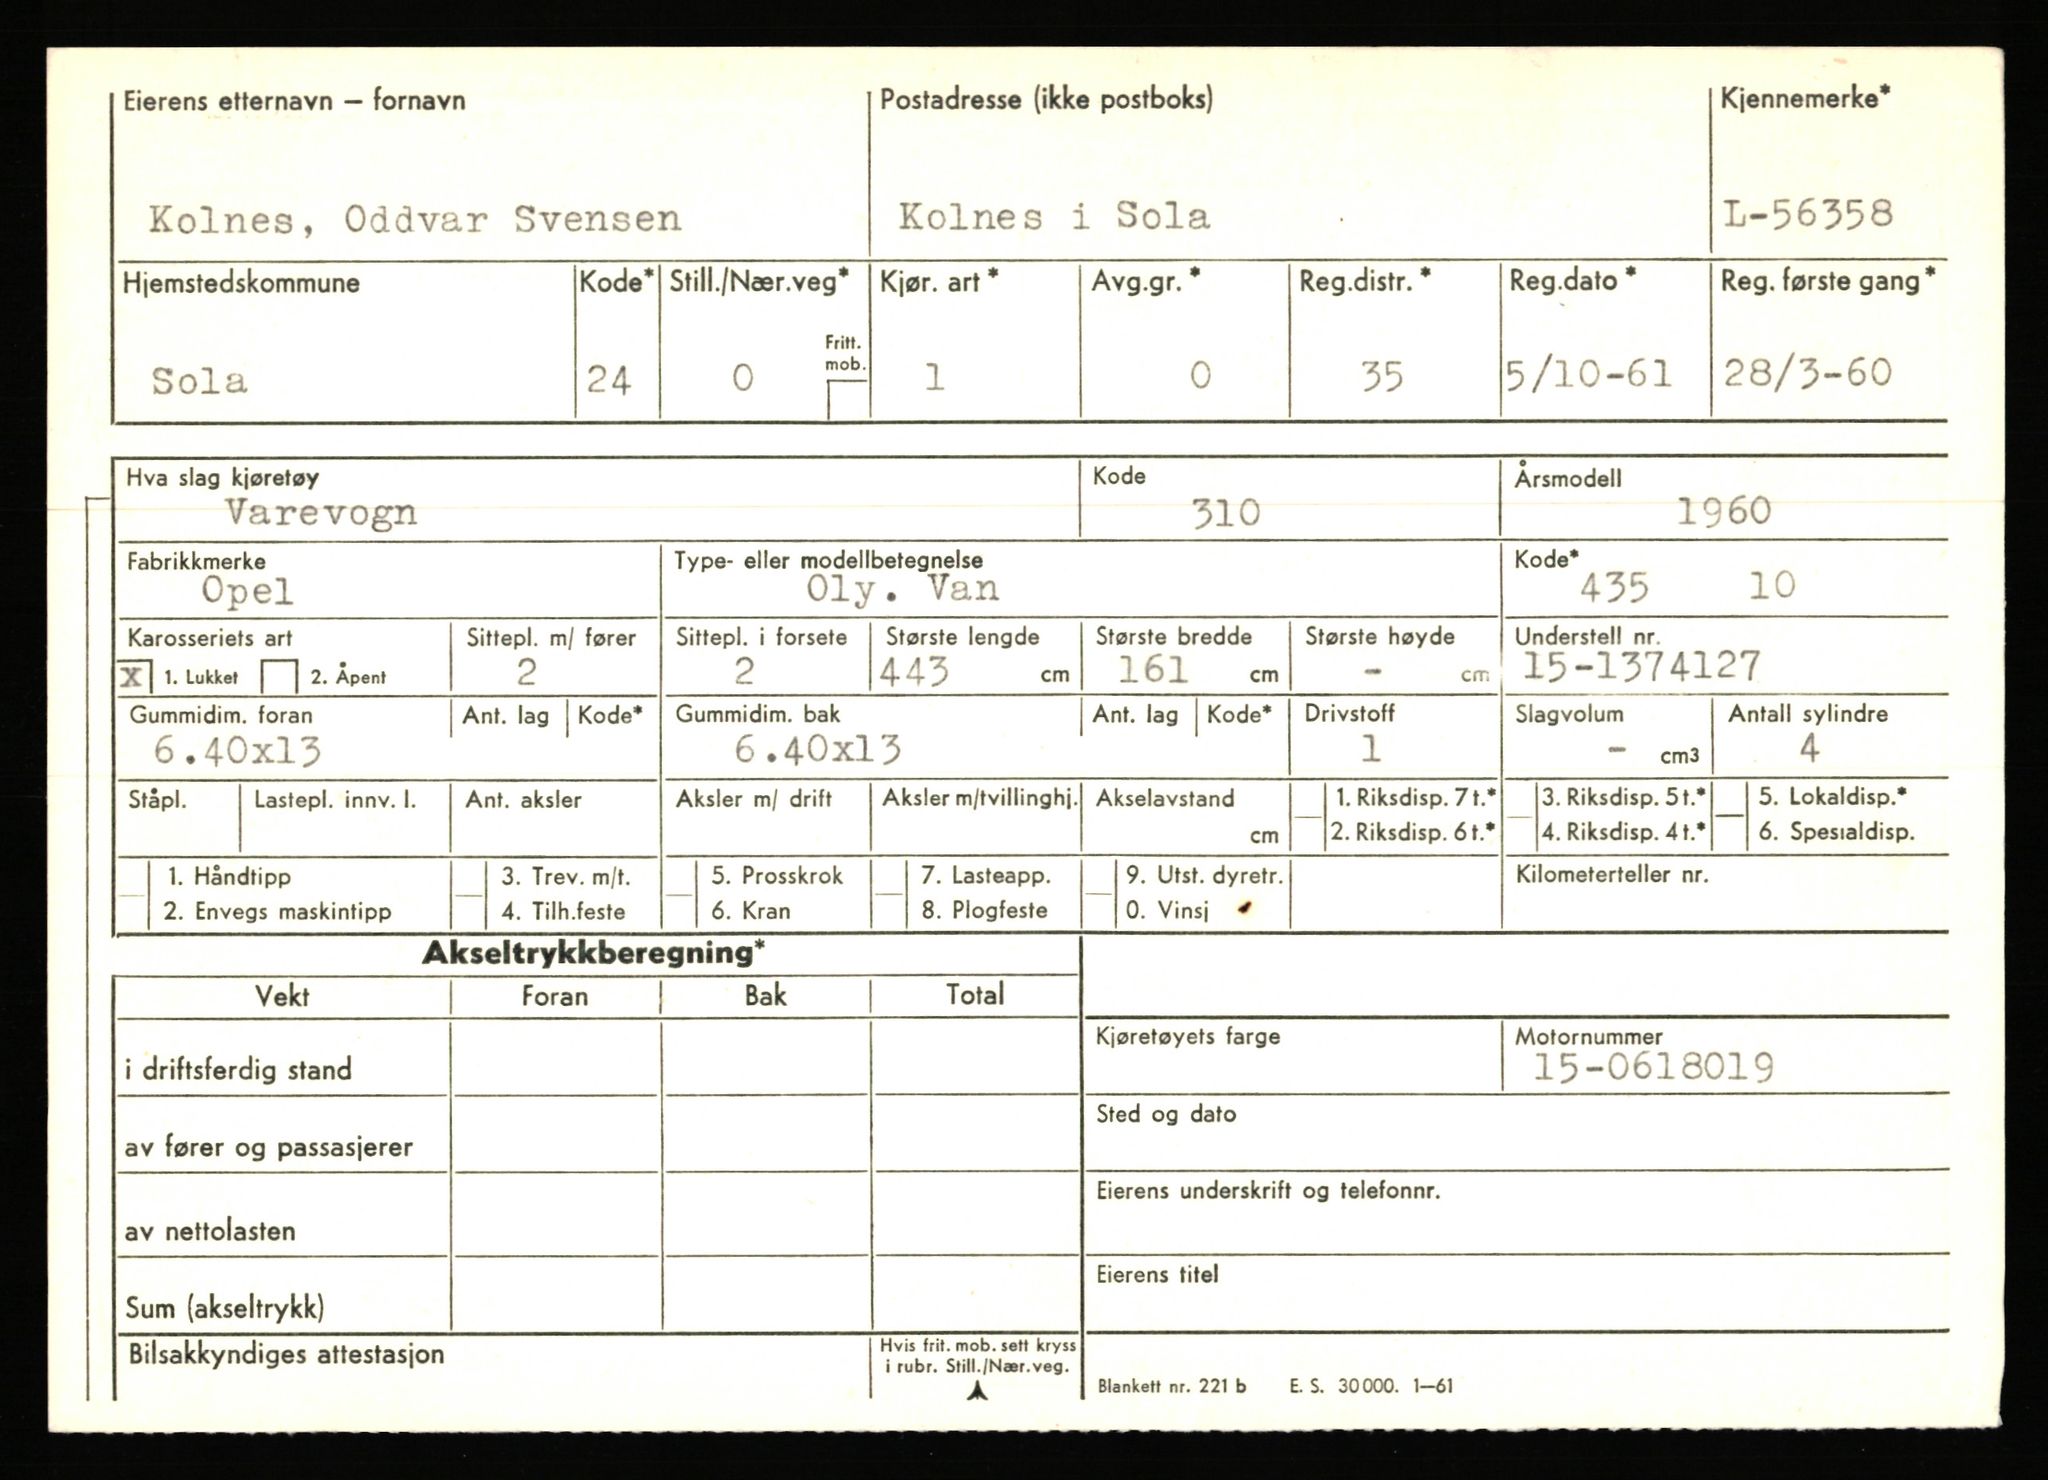 Eierens etternavn — fornavn Postadresse (ikke postboks) Kjennemerke*
Kolnes, Oddvar Svensen Kolnes i Sola L-56358
Hjemstedskommune Kode* Still./Nær.veg* Kjør. art* Avg.gr.* Reg.distr.* Reg.dato* Reg. første gang*
Fritt.
mob.
Sola 24 0 1 0 35 5/10-61 28/3-60
Hva slag kjøretøy Kode Årsmodell
Varevogn 310 1960
Fabrikkmerke Type- eller modellbetegnelse Kode*
Opel Oly. Van 435 10
Karosseriets art Sittepl. m/ fører Sittepl. i forsete Største lengde Største bredde Største høyde Understell nr.
X 1. Lukket 2. Åpent 2 2 443 cm 161 cm - cm 15-1374127
Gummidim. foran Ant. lag Kode* Gummidim. bak Ant. lag Kode* Drivstoff Slagvolum Antall sylindre
6.40x13 6.40x13 1 - cm3 4
Ståpl. Lastepl. innv. l. Ant. aksler Aksler m/ drift Aksler m/tvillinghj. Akselavstand 1. Riksdisp. 7 t.* 3. Riksdisp. 5 t.* 5. Lokaldisp.*
cm 2. Riksdisp. 6 t.* 4. Riksdisp. 4 t.* 6. Spesialdisp.
1. Håndtipp 3. Trev. m/t. 5. Prosskrok 7. Lasteapp. 9. Utst. dyretr. Kilometerteller nr.
2. Envegs maskintipp 4. Tilh.feste 6. Kran 8. Plogfeste 0. Vinsj
Akseltrykkberegning*
Vekt Foran Bak Total
Kjøretøyets farge Motornummer
i driftsferdig stand 15-0618019
Sted og dato
av fører og passasjerer
Eierens underskrift og telefonnr.
av nettolasten
Eierens titel
Sum (akseltrykk)
Bilsakkyndiges attestasjon Hvis frit. mob. sett kryss
i rubr. Still./Nær.veg.
Blankett nr. 221 b E. S. 30 000. 1—61